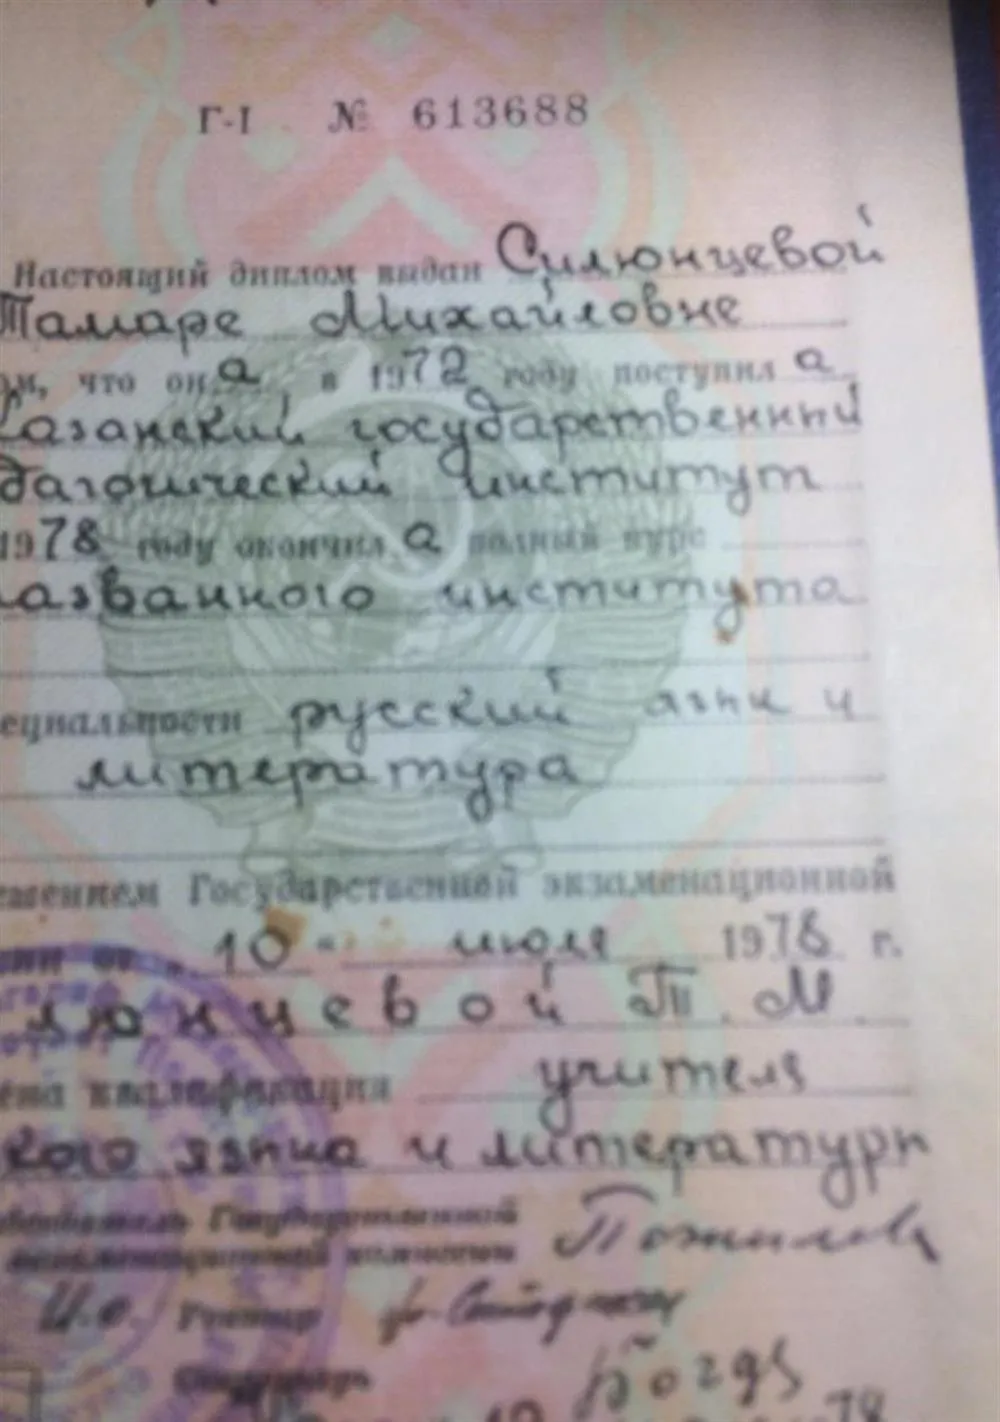 Г-I № 613688
Настоящий диплом выдан Силюнцевой
Тамаре Михайловне
ом, что она в 1972 году поступила
Казанский государственный
дагогический институт
1978 году окончила полный курс
названного института
ециальности русский язык и
литература
ешением Государственной экзаменационной
сии от „10" июля 1978 г.
люнцевой Т. М.
ена квалификация учителя
кого языка и литературы
Председатель Государственной
экзаменационной комиссии
И.о. Ректор
Секретарь